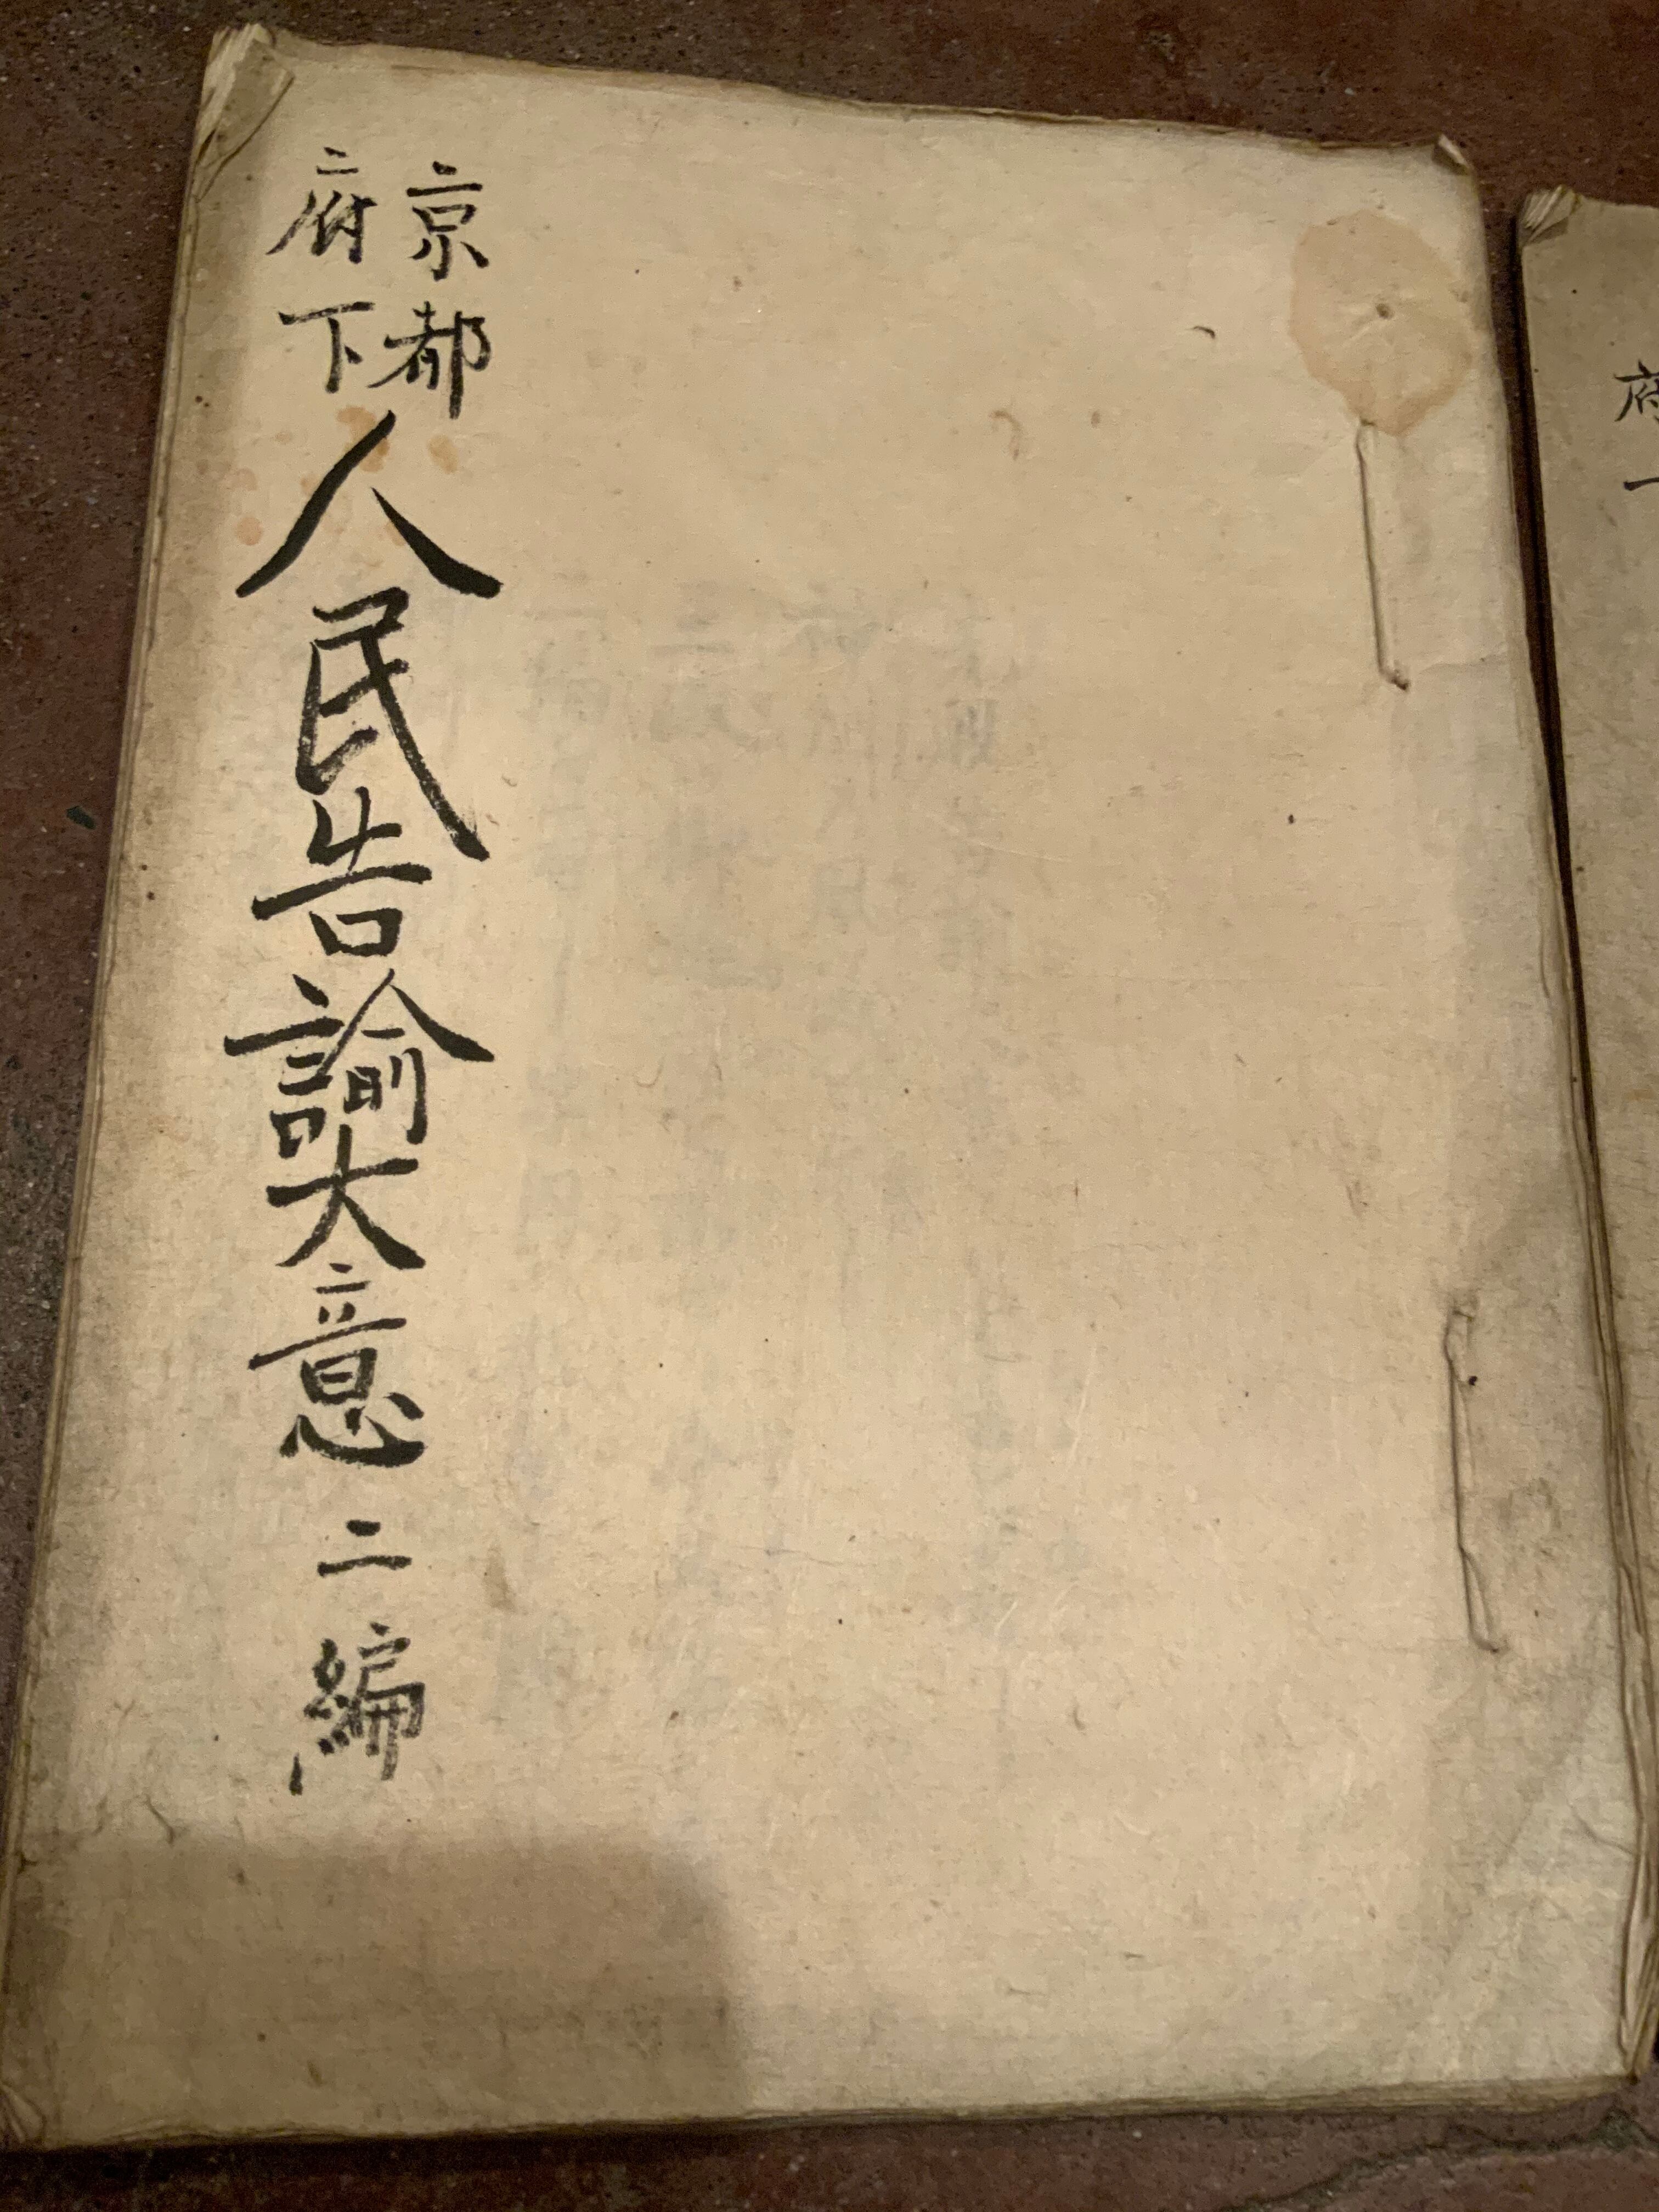 京都
府下
人民告諭大意 二編
府